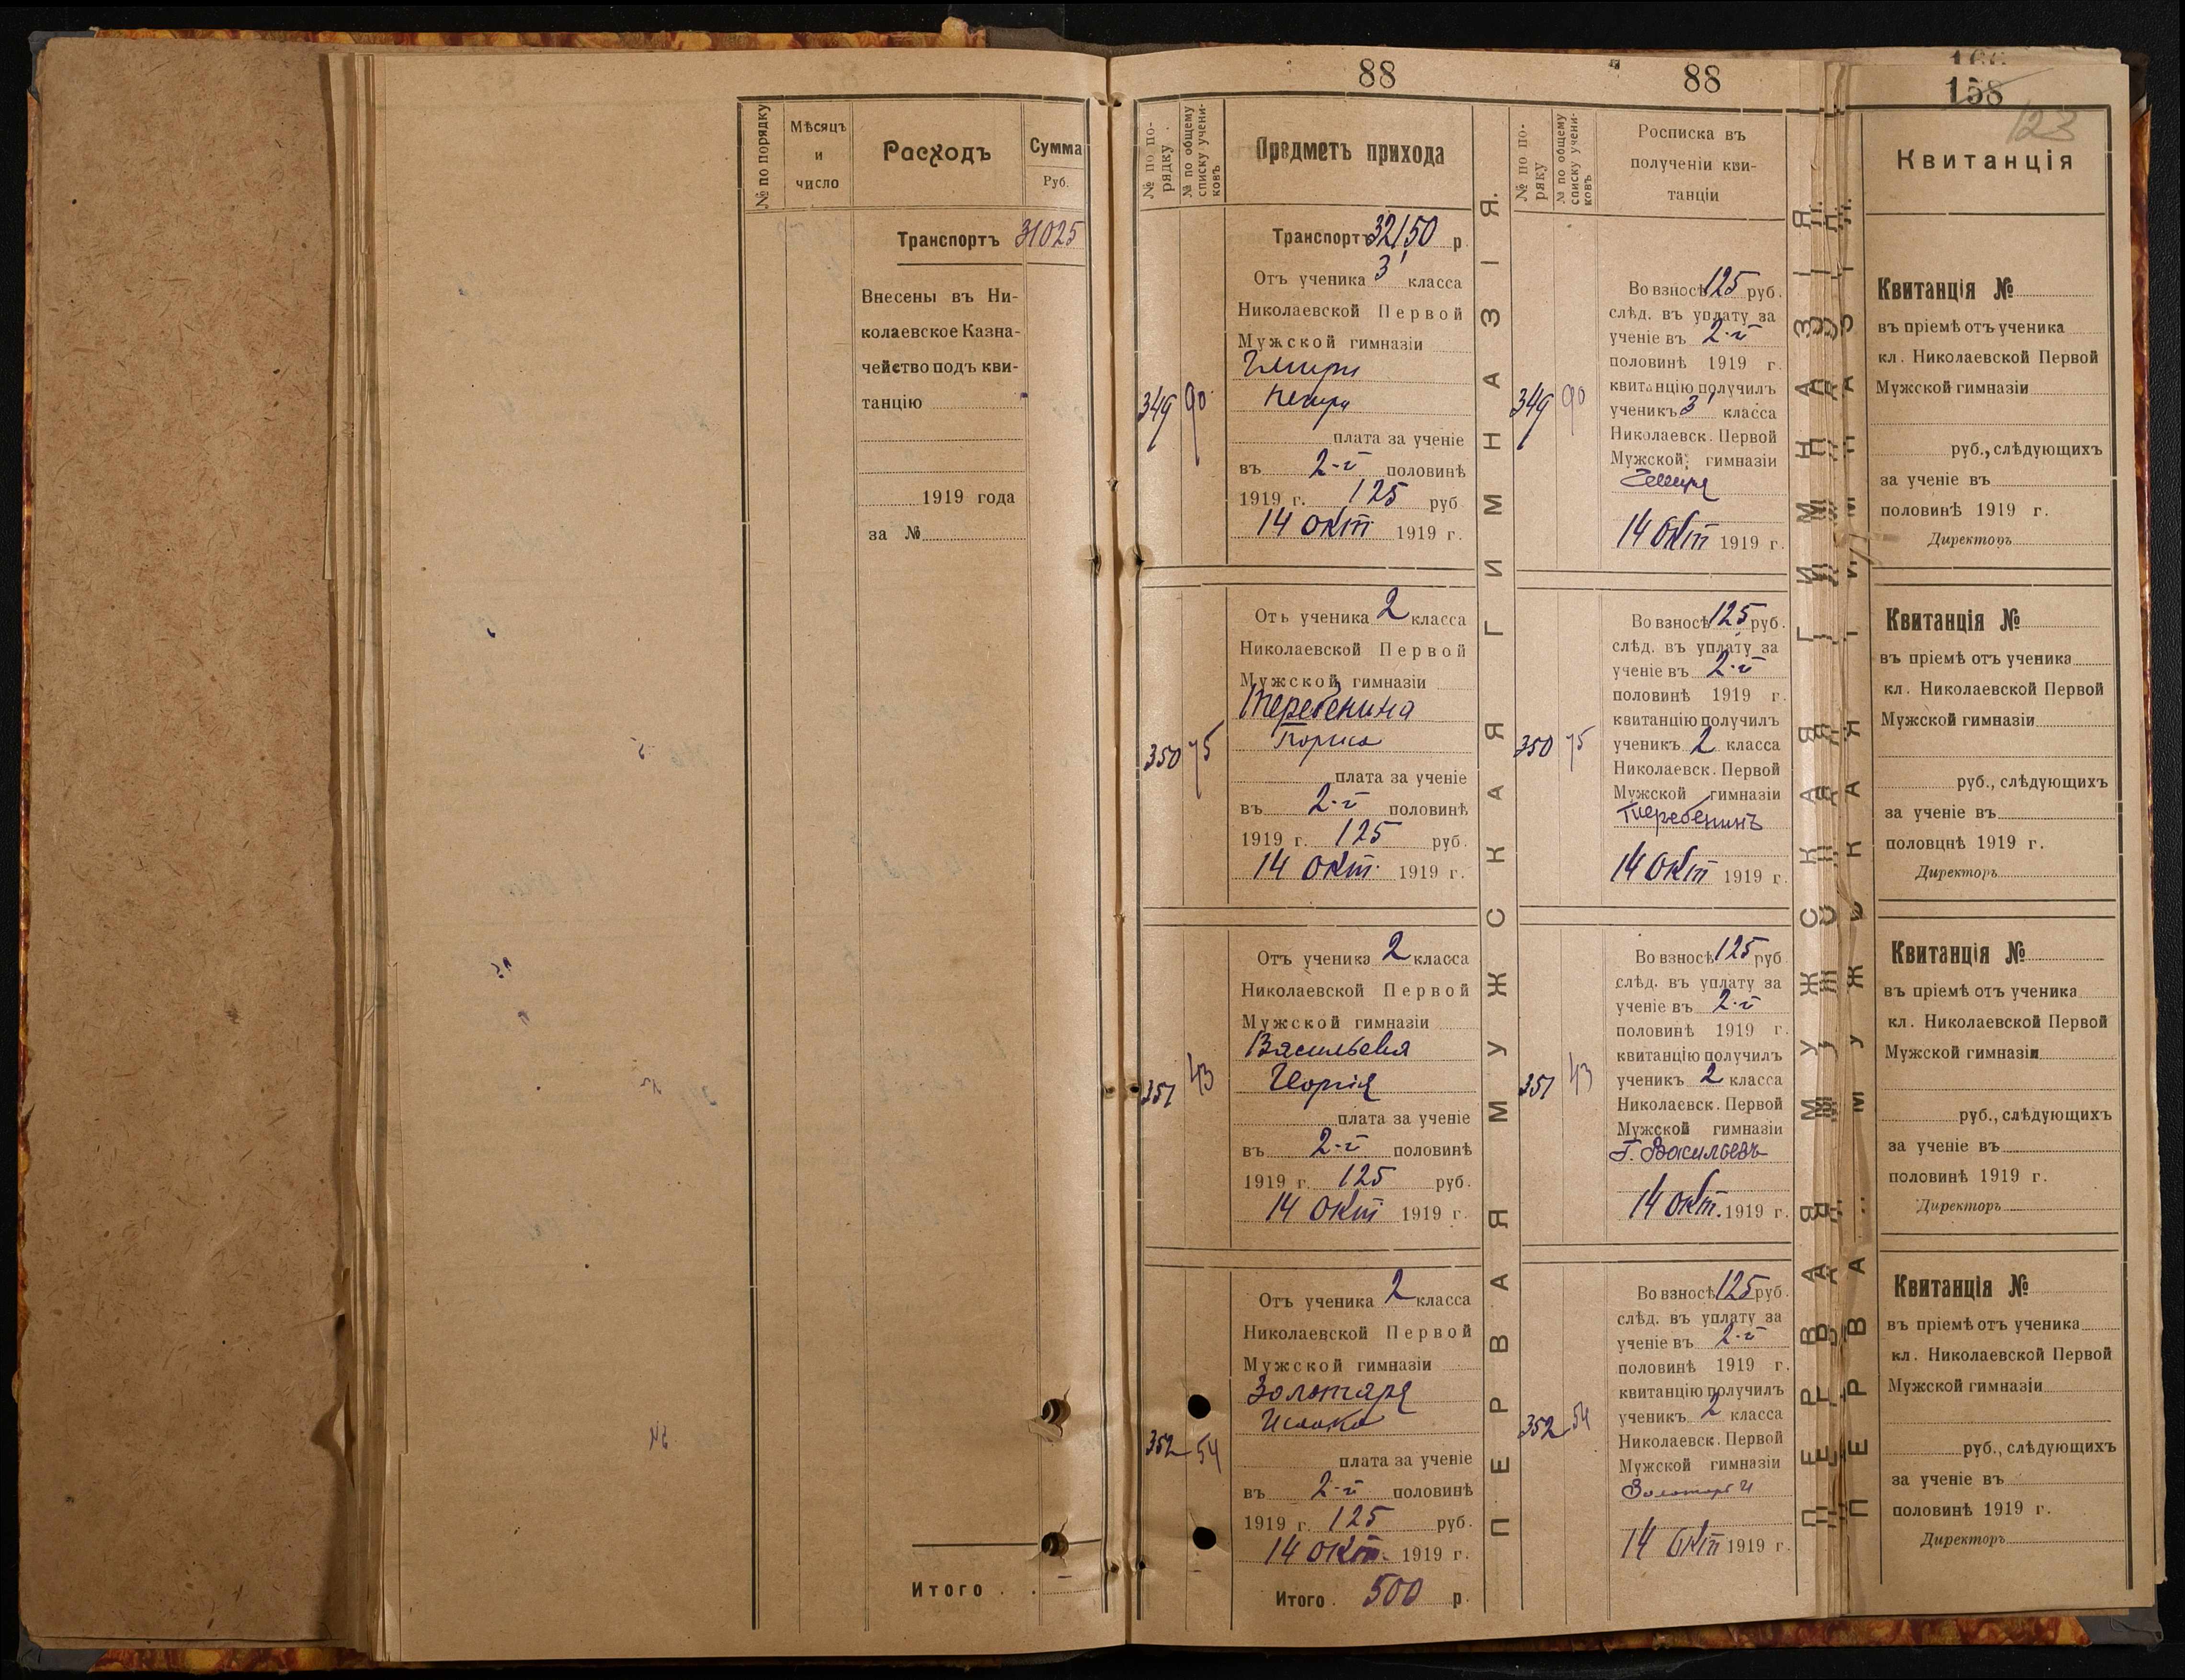 № по порядку
Мѣсяцъ
и
число
Расходъ
Сумма
Руб.
Транспортъ 31025
Внесены въ Ни-
колаевское Казна-
чейство подъ кви-
танцію
1919 года
за №
Итого .
88
№ по по-
рядку
№ по общему
списку учени-
ковъ
Предметъ прихода
Транспортъ 32150 р.
349
90
Отъ ученика 3 класса
Николаевской Первой
Мужской гимназіи
плата за ученіе
въ 2-й половинѣ
1919 г. 125 руб
14 окт 1919 г.
350
75
Отъ ученика 2 класса
Николаевской Первой
Мужской гимназіи
Теребенина
плата за ученіе
въ 2-й половинѣ
1919 г. 125 руб.
14 окт. 1919 г.
351
43
Отъ ученика 2 класса
Николаевской Первой
Мужской гимназіи
Васильева
плата за ученіе
въ 2-й половинѣ
1919 г. 125 руб.
14 окт 1919 г.
352
54
Отъ ученика 2 класса
Николаевской Первой
Мужской гимназіи
Золотаря
Исаака
плата за ученіе
въ 2-й половинѣ
1919 г. 125 руб.
14 окт. 1919 г.
Итого . 500 р.
ПЕРВАЯ МУЖСКАЯ ГИМНАЗІЯ.
88
№ по по-
ряку
№ по общему
списку учени-
ковъ
Росписка въ
полученіи кви-
танціи
349
90
Во взносѣ 125 руб.
слѣд. въ уплату за
ученіе въ 2-й
половинѣ 1919 г.
квитанцію получилъ
ученикъ 3 класса
Николаевск. Первой
Мужской гимназіи
14 окт 1919 г.
350
75
Во взносѣ 125 руб.
слѣд. въ уплату за
ученіе въ 2-й
половинѣ 1919 г.
квитанцію получилъ
ученикъ 2 класса
Николаевск. Первой
Мужской гимназіи
Теребенинъ
14 окт 1919 г.
351
43
Во взносѣ 125 руб
слѣд. въ уплату за
ученіе въ 2-й
половинѣ 1919 г.
квитанцію получилъ
ученикъ 2 класса
Николаевск. Первой
Мужской гимназіи
Г. Васильевъ
14 окт. 1919 г.
352
54
Во взносѣ 125 руб.
слѣд. въ уплату за
ученіе въ 2-й
половинѣ 1919 г.
квитанцію получилъ
ученикъ 2 класса
Николаевск. Первой
Мужской гимназіи
Золотарь И
14 окт 1919 г.
158
123
Квитанція
Квитанція №
въ пріемѣ отъ ученика
кл. Николаевской Первой
Мужской гимназіи
руб., слѣдующихъ
за ученіе въ
половинѣ 1919 г.
Директоръ
Квитанція №
въ пріемѣ отъ ученика
кл. Николаевской Первой
Мужской гимназіи
руб., слѣдующихъ
за ученіе въ
половцнѣ 1919 г.
Директоръ
Квитанція №
въ пріемѣ отъ ученика
кл. Николаевской Первой
Мужской гимназіи
руб., слѣдующихъ
за ученіе въ
половинѣ 1919 г.
Директоръ
Квитанція №
въ пріемѣ отъ ученика
кл. Николаевской Первой
Мужской гимназіи
руб., слѣдующихъ
за ученіе въ
половинѣ 1919 г.
Директоръ